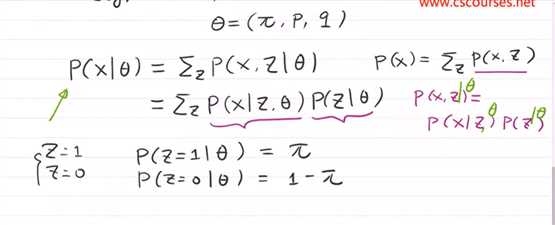 www.cscourses.net
θ = (π, p, q)
P(x|θ) = Σz P(x, z|θ)    P(x) = Σz P(x, z)
= Σz P(x|z, θ) P(z|θ)    P(x, z|θ) =
P(x|z, θ) P(z|θ)
{ z=1    P(z=1|θ) = π
z=0    P(z=0|θ) = 1-π